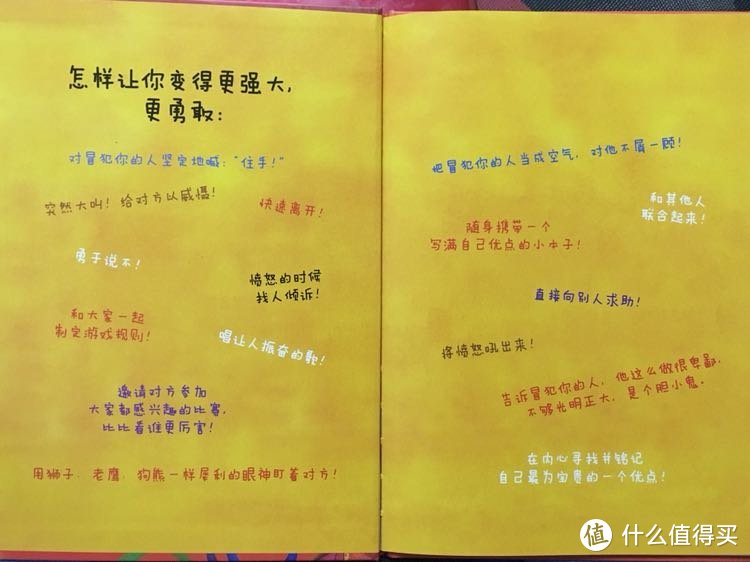 怎样让你变得更强大,
更勇敢:
对冒犯你的人坚定地喊:“住手!”
突然大叫!给对方以威慑!
快速离开!
勇于说不!
愤怒的时候
找人倾诉!
和大家一起
制定游戏规则!
唱让人振奋的歌!
邀请对方参加
大家都感兴趣的比赛,
比比看谁更厉害!
用狮子、老鹰、狗熊一样犀利的眼神盯着对方!
把冒犯你的人当成空气,对他不屑一顾!
和其他人
联合起来!
随身携带一个
写满自己优点的小本子!
直接向别人求助!
将愤怒吼出来!
告诉冒犯你的人,他这么做很卑鄙,
不够光明正大,是个胆小鬼。
在内心寻找并铭记
自己最为宝贵的一个优点!
值 什么值得买